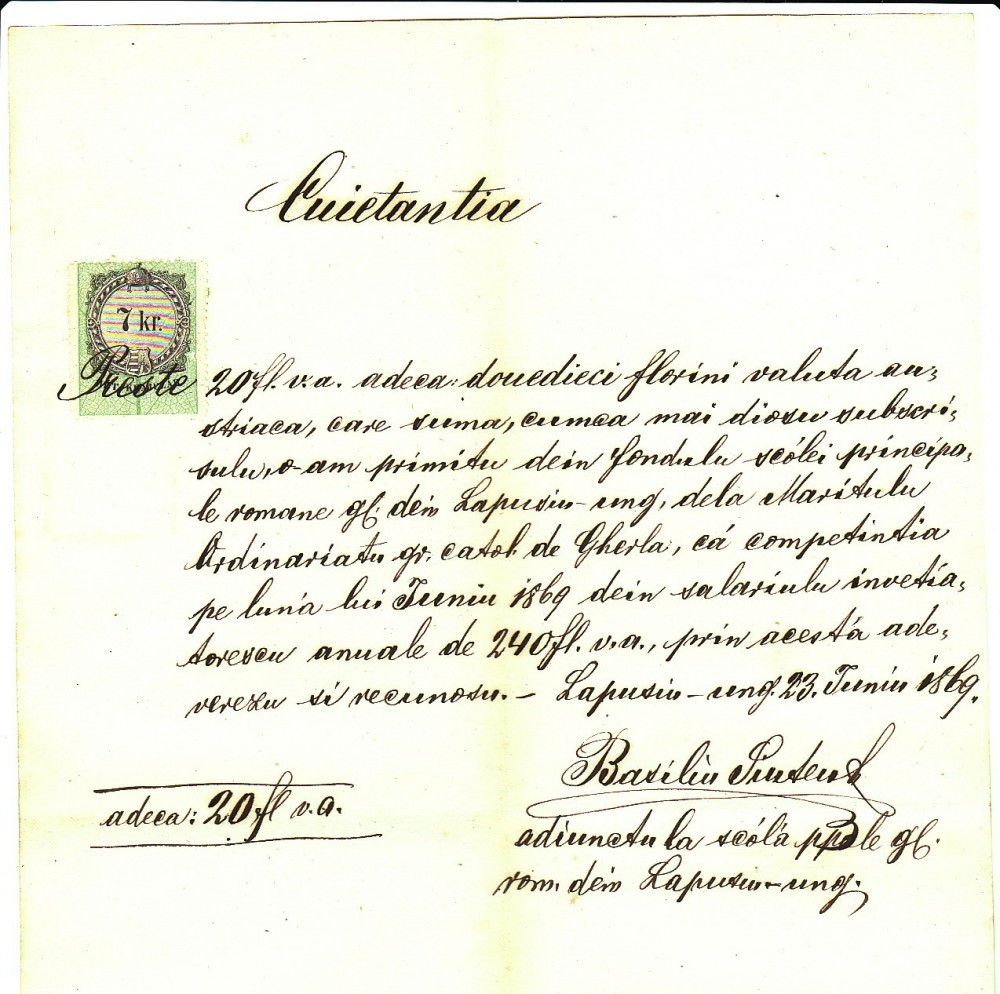 Cuietantia
7 kr.
Peste 20 fl. v. a. adeca: douedieci florini valuta au-
striaca, care suma, cumca mai diosu subscri-
sulu, o-am primitu dein fondulu scólei principa-
le romane gl. dein Lapusiu-ung. dela Maritulu
Ordinariatu gr. catol. de Gherla, cá competintia
pe lun'a lui Juniu 1869 dein salariulu invetia-
torescu anuale de 240 fl. v. a., prin acest'a ade-
verezu si recunoscu. – Lapusiu-ung. 23. Juniu 1869.
Basiliu
adeca: 20 fl v. a.
adiunctu la scól'a pple gl.
rom. dein Lapusiu-ung.